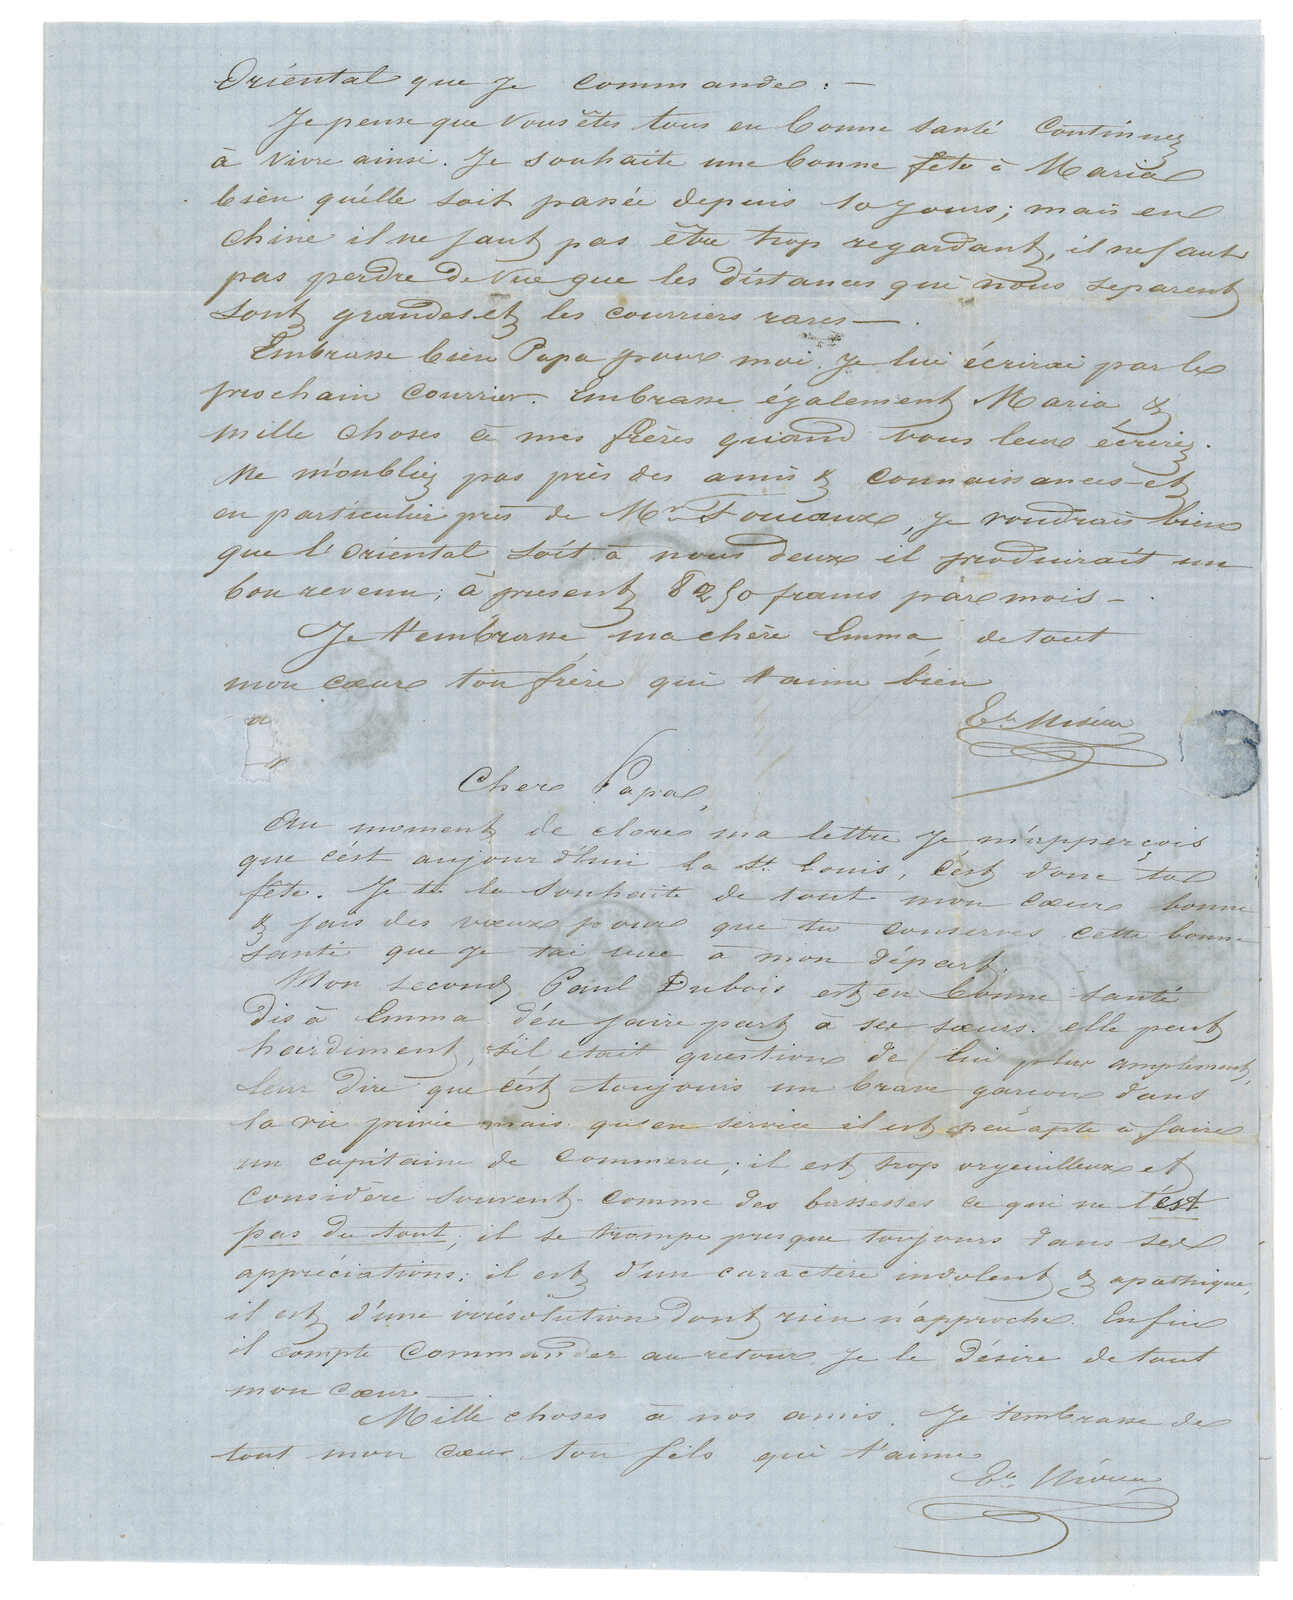 Oriental que je commande. —
Je pense que vous êtes tous en bonne santé Continuez
à vivre ainsi. Je souhaite une bonne fête à Maria
bien qu'elle soit passée depuis 10 jours; mais en
Chine il ne faut pas être trop regardant, il ne faut
pas perdre de vue que les distances qui nous separent
sont grandes et les courriers rares —.
Embrasse bien Papa pour moi. Je lui écrirai par le
prochain courrier. Embrasse également Maria &
mille choses à mes frères quand vous leur écrirez.
Ne m'oubliez pas près des amis & connaissances et
en particulier près de Mr Foucaux, je voudrais bien
que l'Oriental soit à nous deux il produirait un
bon revenu; à present 8250 francs par mois —.
Je t'embrasse ma chère Emma de tout
mon cœur ton frère qui t'aime bien
Cher Papa,
Au moment de clore ma lettre je m'apperçois
que c'est aujourd'hui la St. Louis, c'est donc ta
fête. Je te la souhaite de tout mon cœur bonne
& fais des vœux pour que tu conserves cette bonne
santé que je t'ai vue à mon départ.
Mon second Paul Dubois est en bonne santé
Dis à Emma d'en faire part à ses sœurs. elle peut
hardiment, s'il etait question de lui plus amplement,
leur dire que c'est toujours un brave garçon dans
la vie privée mais qu'en service il est peu apte à faire
un capitaine de commerce; il est trop orgeuilleux et
considère souvent comme des bassesses ce qui ne l'est
pas du tout; il se trompe presque toujours dans ses
appréciations; il est d'un caractère indolent & apathique,
il est d'une irrésolution dont rien n'approche. Enfin
il compte commander au retour je le désire de tout
mon cœur —
Mille choses à nos amis. Je t'embrasse de
tout mon cœur ton fils qui t'aime